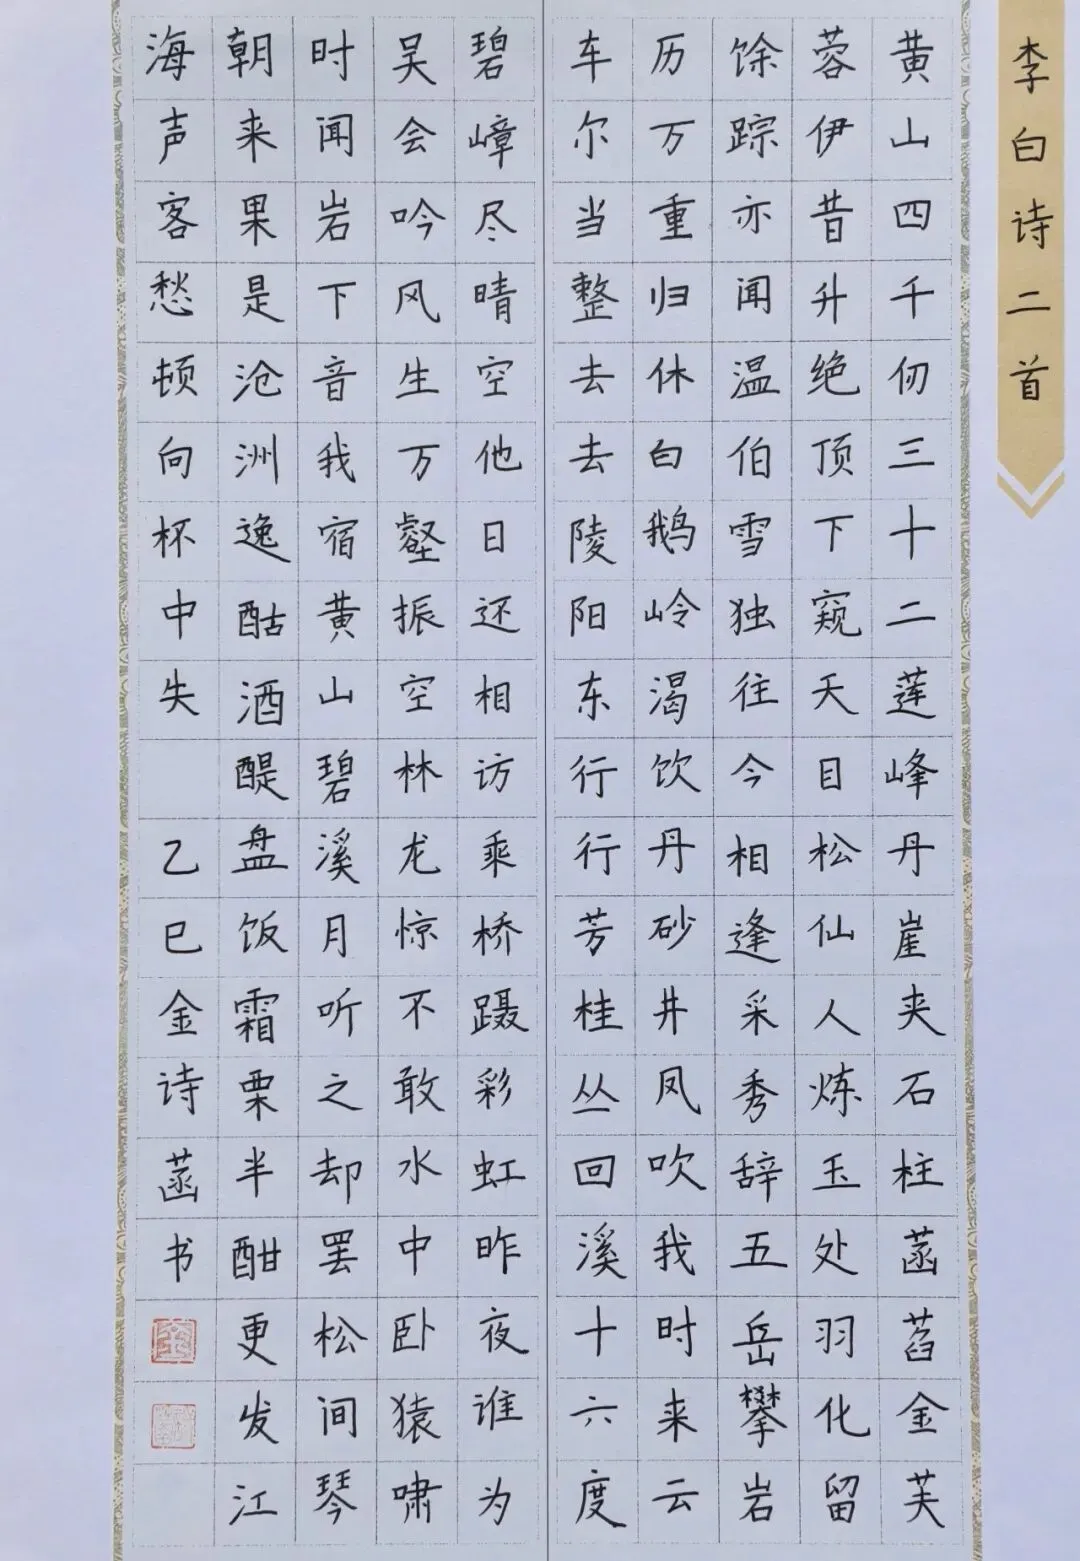 李白诗二首
黄山四千仞三十二莲峰丹崖夹石柱菡萏金芙
蓉伊昔升绝顶下窥天目松仙人炼玉处羽化留
馀踪亦闻温伯雪独往今相逢采秀辞五岳攀岩
历万重归休白鹅岭渴饮丹砂井凤吹我时来云
车尔当整去去陵阳东行行芳桂丛回溪十六度
碧嶂尽晴空他日还相访乘桥蹑彩虹昨夜谁为
吴会吟风生万壑振空林龙惊不敢水中卧猿啸
时闻岩下音我宿黄山碧溪月听之却罢松间琴
朝来果是沧洲逸酤酒醍盘饭霜栗半酣更发江
海声客愁顿向杯中失 乙巳金诗菡书